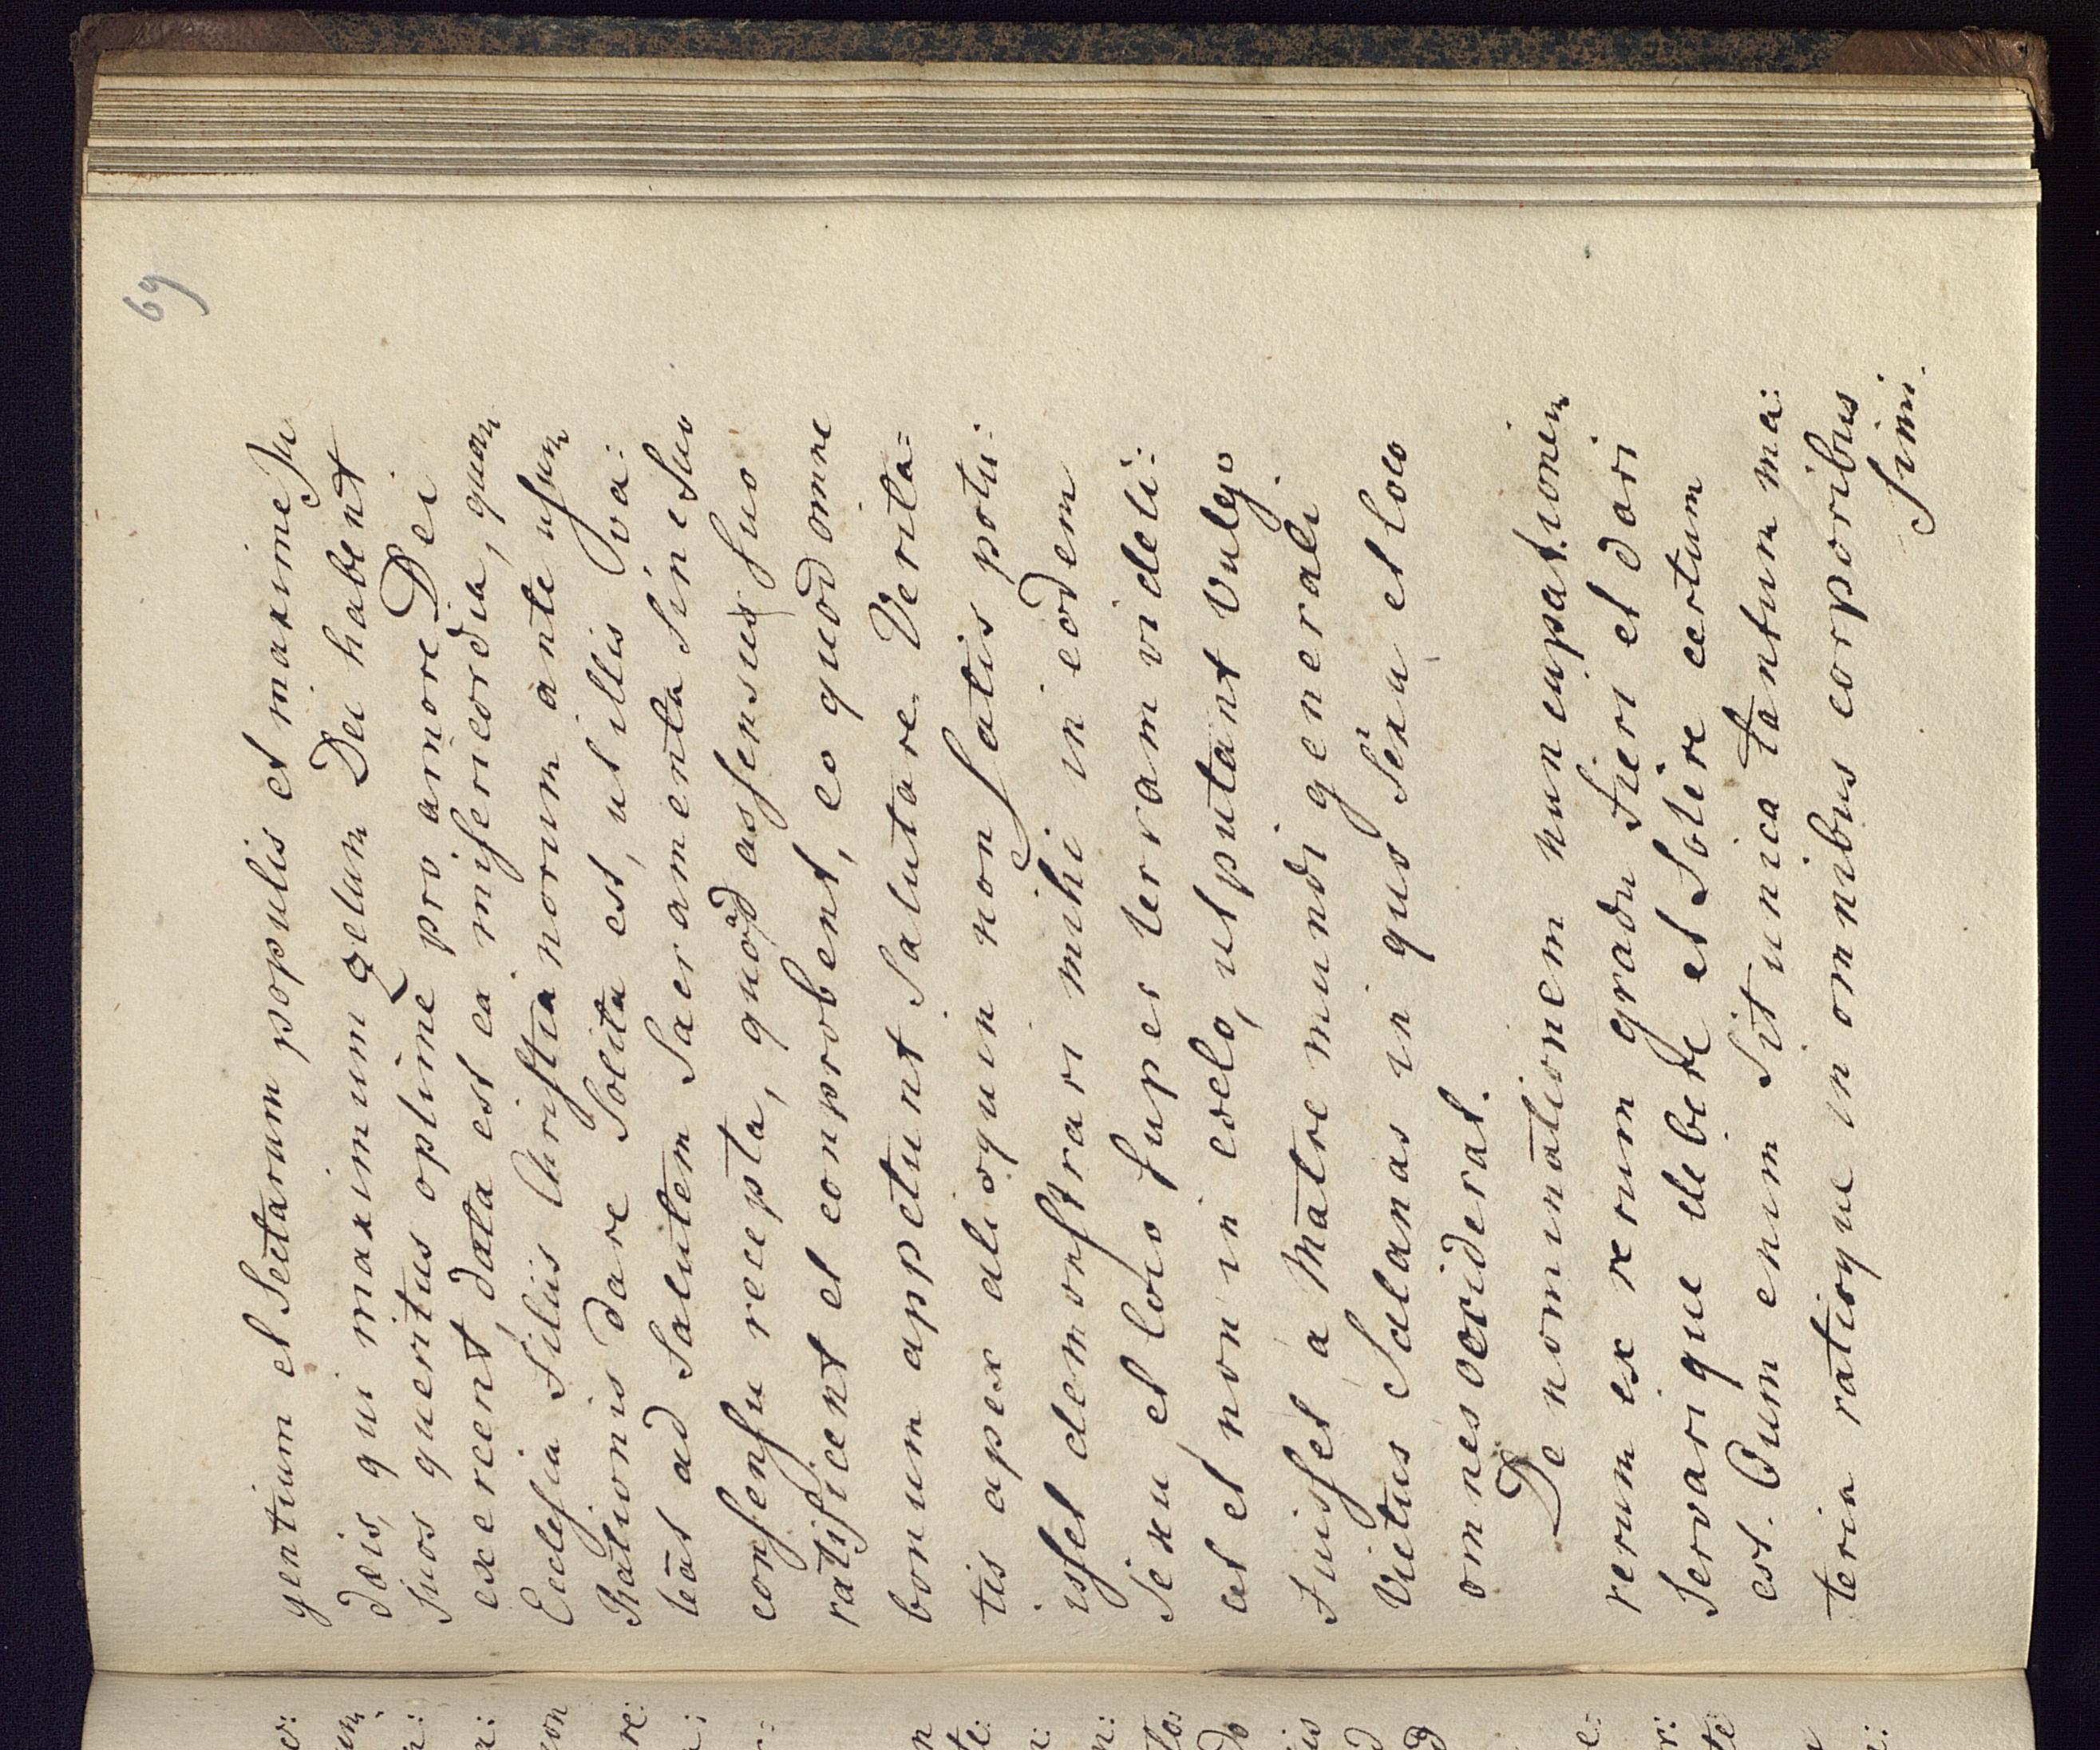 69
gentium et Sectarum populis et maxime Ju
dæis, qui maximum zelum Dei habent
suos queritus optime pro amore Dei
exercent, data est ea misericordia, quam
Ecclesia Filiis Christianorum ante usum
Rationis dare Solita est, ut illis va:
leat ad Salutem Sacramenta Sine Suo
consensu recepta, quoad assensus suo
ratificent et conprobent, eo quod omne
bonum appetunt Salutare. Verita=
tis apex alioquin non Satis potu:
isset demonstrari mihi in eodem
Sexu, et loco super terram videli:
cet et non in coelo, ut putant vulgo
Fuisset a Matre mundi generali
Victus Satanas in quo Sexu et loco
omnes occiderat.
De nominationem nuncupationem
rerum ex rerum gradu Fieri et dari
Servarique debere et Solere certum
est. Cum enim Sit unica tantum ma:
teria ratioque in omnibus corporibus
simi.